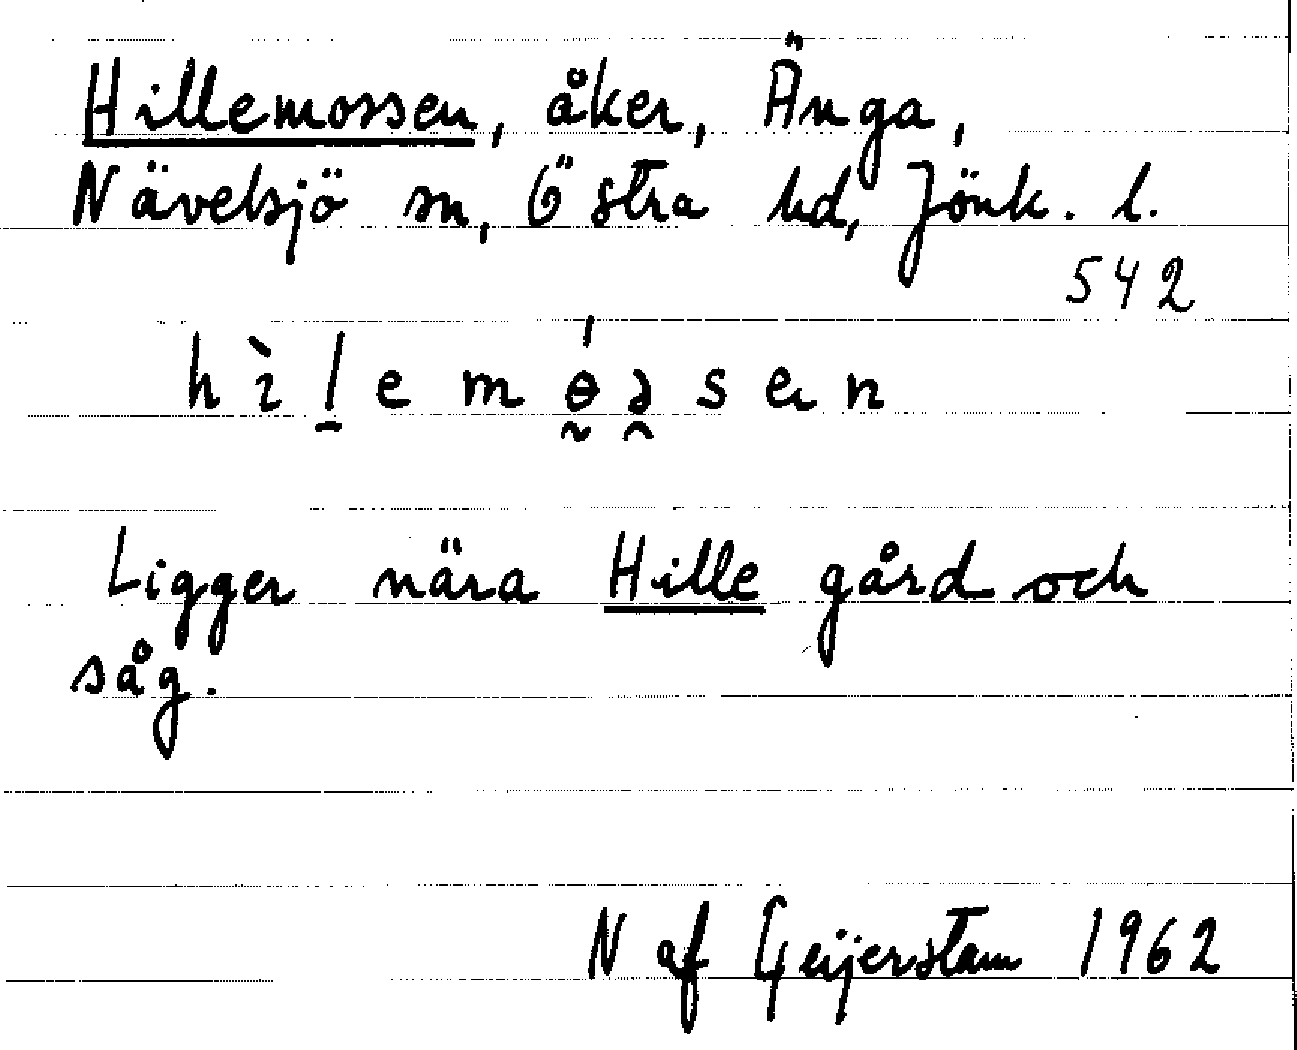 Hillemossen, åker, Änga,
Nävelsjö sn, Östra hd, Jönk. l.
542
h ì l̲ e m ɵ̰́ ə̯ s e n
Ligger nära Hille gård och
såg.
N af Geijerstam 1962